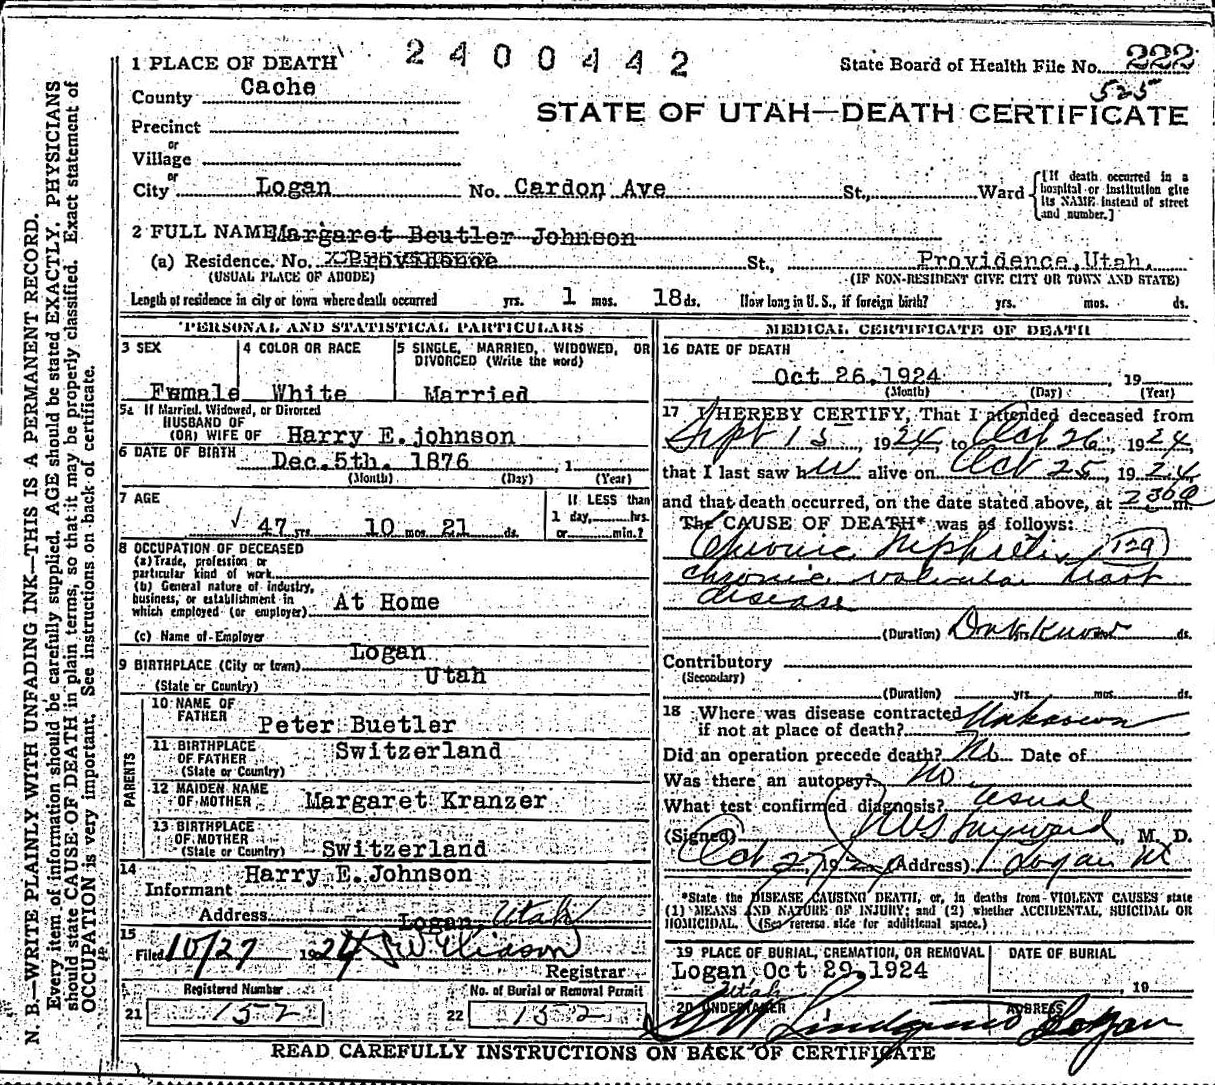 N. B.—WRITE PLAINLY WITH UNFADING INK—THIS IS A PERMANENT RECORD.
Every item of information should be carefully supplied. AGE should be stated EXACTLY. PHYSICIANS
should state CAUSE OF DEATH in plain terms, so that it may be properly classified. Exact statement of
OCCUPATION is very important. See instructions on back of certificate.
2400442
1 PLACE OF DEATH
State Board of Health File No. 222
525
County Cache
STATE OF UTAH—DEATH CERTIFICATE
Precinct
or
Village
or
City Logan No. Cardon Ave St., Ward
[If death occurred in a
hospital or institution give
its NAME instead of street
and number.]
2 FULL NAME Margaret Beutler Johnson
(a) Residence. No. Providence St., Providence, Utah.
(USUAL PLACE OF ABODE) (IF NON-RESIDENT GIVE CITY OR TOWN AND STATE)
Length of residence in city or town where death occurred yrs. 1 mos. 18 ds. How long in U. S., if foreign birth? yrs. mos. ds.
PERSONAL AND STATISTICAL PARTICULARS
3 SEX 4 COLOR OR RACE 5 SINGLE, MARRIED, WIDOWED, OR
DIVORCED (Write the word)
Female White Married
5a If Married, Widowed, or Divorced
HUSBAND OF
(OR) WIFE OF Harry E. johnson
6 DATE OF BIRTH Dec. 5th. 1876 , 1
(Month) (Day) (Year)
7 AGE If LESS than
47 yrs 10 mos 21 ds. 1 day, hrs.
or min.?
8 OCCUPATION OF DECEASED
(a) Trade, profession or
particular kind of work
(b) General nature of industry,
business, or establishment in
which employed (or employer) At Home
(c) Name of Employer
Logan
9 BIRTHPLACE (City or town) Utah
(State or Country)
PARENTS
10 NAME OF
FATHER Peter Buetler
11 BIRTHPLACE
OF FATHER Switzerland
(State or Country)
12 MAIDEN NAME
OF MOTHER Margaret Kranzer
13 BIRTHPLACE
OF MOTHER
(State or Country) Switzerland
14
Informant Harry E. Johnson
Address Logan Utah
15
Filed 10/27 1924
Registrar
Registered Number No. of Burial or Removal Permit
21 152 22 152
MEDICAL CERTIFICATE OF DEATH
16 DATE OF DEATH
Oct 26, 1924 , 19
(Month) (Day) (Year)
17 I HEREBY CERTIFY, That I attended deceased from
Sept 15, 1924, to Oct 26, 1924,
that I last saw her alive on Oct 25, 1924
and that death occurred, on the date stated above, at 230 m.
The CAUSE OF DEATH* was as follows:
Chronic Nephritis (129)
chronic valvular heart
disease
(Duration) Dont Know ds.
Contributory
(Secondary)
(Duration) yrs. mos. ds.
18 Where was disease contracted
if not at place of death? Unknown
Did an operation precede death? No Date of
Was there an autopsy? No
What test confirmed diagnosis? usual
(Signed) Hayward, M. D.
Oct 27, 192 (Address) Logan Ut
*State the DISEASE CAUSING DEATH, or, in deaths from VIOLENT CAUSES state
(1) MEANS AND NATURE OF INJURY; and (2) whether ACCIDENTAL, SUICIDAL OR
HOMICIDAL. (See reverse side for additional space.)
19 PLACE OF BURIAL, CREMATION, OR REMOVAL DATE OF BURIAL
Logan Oct 29, 1924
Utah , 19
20 UNDERTAKER ADDRESS
Lindquist Logan
READ CAREFULLY INSTRUCTIONS ON BACK OF CERTIFICATE